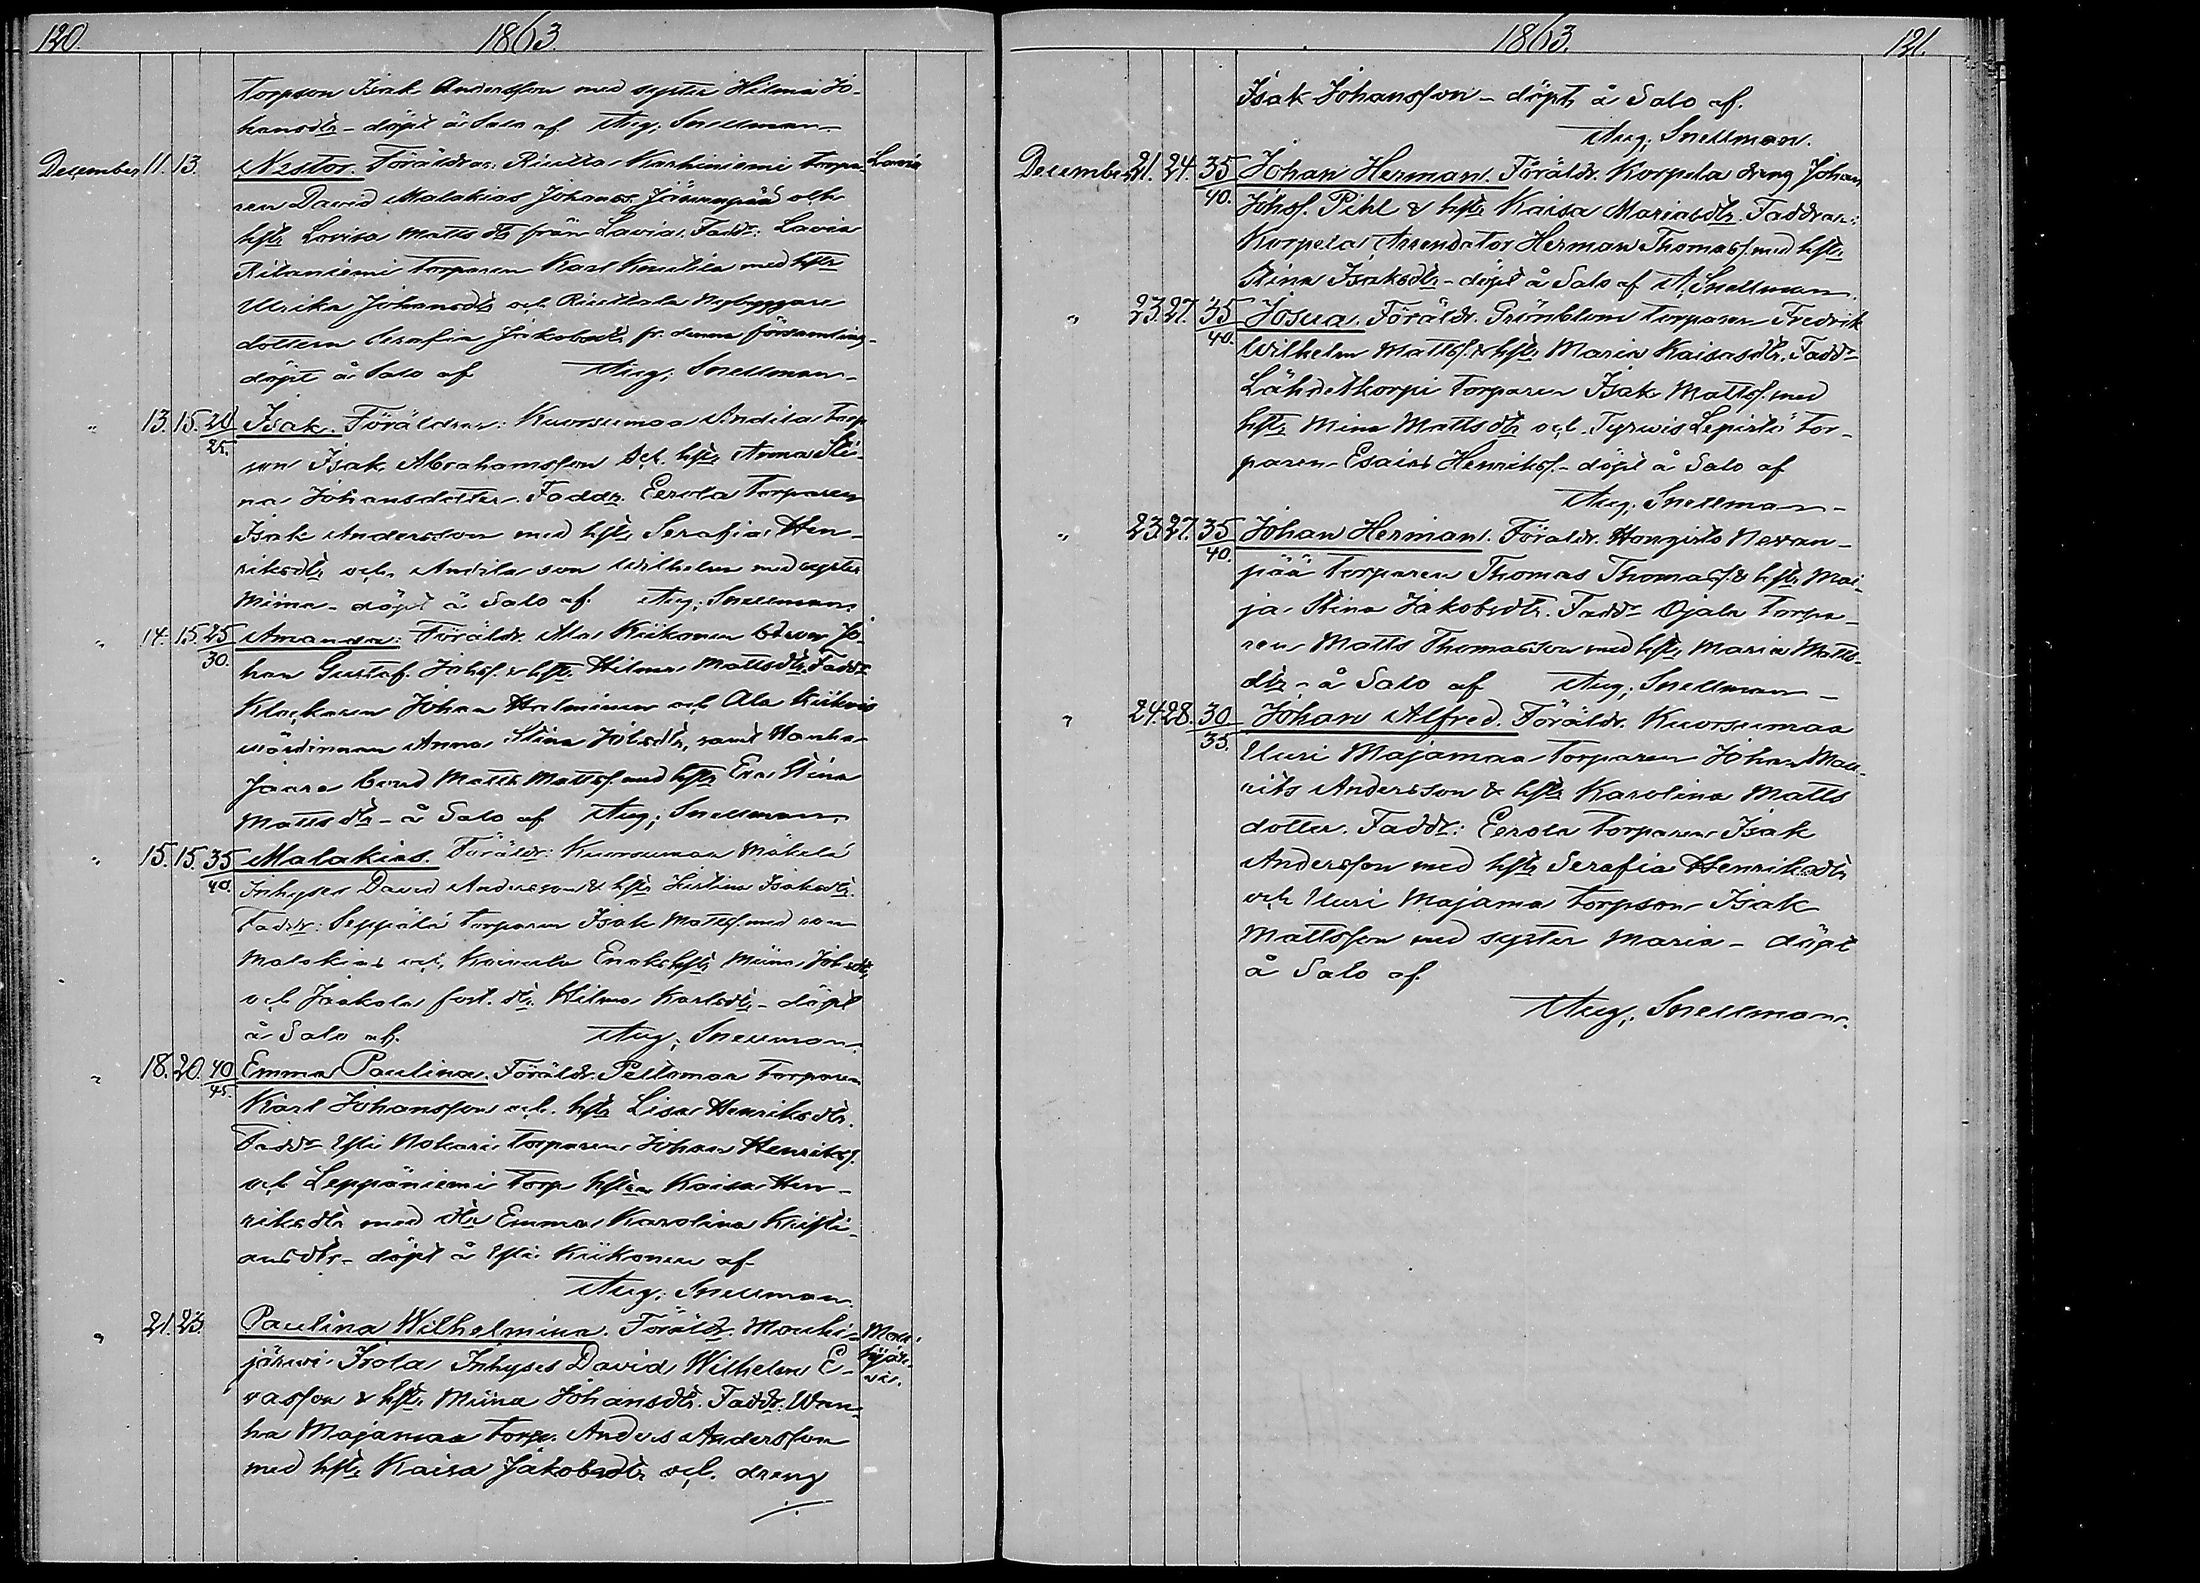 120. 1863
torpson Isak Andersson med syster Hilma Jo-
hansdtr - döpt å Salo af Aug; Snellman.
December 11. 13. Nestor. Föräldrar: Karhiniemi torpa- Lavia
ren David Malakias Johanss. och
hstr Lovisa Matts dtr från Lavia. Faddr: Lavia
Ritaniemi torparen Karl med hstr
Ulrika Johansdtr och Nybyggare
dottern Serafia Jakobsdtr fr. denna församling -
döpt å Salo af Aug; Snellman -
" 13. 15. 20/25. Isak. Föräldrar: Kuorsumaa Andila torp
son Isak Abrahamsson och hstr Anna Sti-
na Johansdotter. Faddr. Eerola torparen
Isak Andersson med hstr Serafia Hen-
riksdtr och Andila son Wilhelm med syster
Miina - döpt å Salo af Aug; Snellman.
" 14. 15. 25/30. Amanda: Föräldr. Ala Kiikonen Jo-
han Gustaf Johs. & hstr Hilma Mattsdtr. Faddr
Klockaren Johan Halminen och Ala
värdinnan Anna Stina Johsdtr, samt Wanha
Jaara Matts Mattss. med hstr Eva Stina
Matts dtr - å Salo af Aug; Snellman.
" 15. 15. 35/40. Malakias. Föräldr: Kuorsumaa Mäkelä
Inhyses David Andersson & hstr Justina Isaksdtr.
Faddr: Seppälä torparen Isak Mattss. med son
Malakias och Koivula hstr Miina Johsdtr,
och Jaakola dtr. Hilma Karlsdtr - döpt
å Salo af. Aug; Snellman.
" 18. 20. 40/45. Emma Paulina. Föräldr. Peltomaa torparen
Karl Johansson och hstr Lisa Henriksdtr.
Faddr Yli Nokari torparen Johan Henrikss.
och Leppäniemi torp Kaisa Hen-
riksdtr med dtr Emma Karolina Kristi-
ansdtr - döpt å Yli Kiikonen af
Aug; Snellman.
" 21. 23. Paulina Wilhelmina. Föräldr. Mouhi- Mou-
järwi Isola Inhyses David Wilhelm E- hijär-
vasson & hstr Miina Johansdtr. Faddr. Wan- wi.
ha Majamaa torp. Anders Andersson
med hstr Kaisa Jakobsdtr och dreng
1863. 121.
Isak Johansson - döpt å Salo af.
Aug; Snellman.
December 21. 24. 35/40. Johan Herman. Föräldr. Korpela dreng Johan
Johss. Pihl & hstr Kaisa Mariasdtr. Faddrar:
Korpela Arrendator Herman Thomass. med hstr
Stina Isaksdtr - döpt å Salo af A. Snellman.
" 23. 27. 35/40. Josua. Föräldr. Grönblom torparen Fredrik
Wilhelm Mattss. & hstr Maria Kaisasdtr. Faddr
Lähdetkorpi torparen Isak Mattss. med
hstr Miina Mattsdtr och Tyrwis Lepistö tor-
paren Esaias Henrikss. - döpt å Salo af
Aug; Snellman -
" 23. 27. 35/40. Johan Herman. Föräldr. Hongisto Nevan-
pää torparen Thomas Thomass. & hstr Mai-
ja Stina Jakobsdtr. Faddr Ojala torpa-
ren Matts Thomasson med hstr Maria Matts-
dtr - å Salo af Aug; Snellman -
" 24. 28. 30/35. Johan Alfred. Föräldr. Kuorsumaa
Uusi Majamaa torparen Johan Mau-
rits Andersson & hstr Karolina Matts
dotter. Faddr: Eerola torparen Isak
Andersson med hstr Serafia Henriksdtr
och Uusi Majama torpson Isak
Mattsson med syster Maria - döpt
å Salo af.
Aug; Snellman.